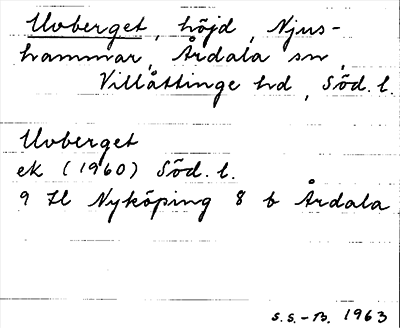 Uvberget, höjd, Njus-
hammar, Årdala sn,
Villåttinge hd, Söd. l.
Uvberget
ek (1960) Söd. l.
9 H Nyköping 8 b Årdala
S.S.-B. 1963